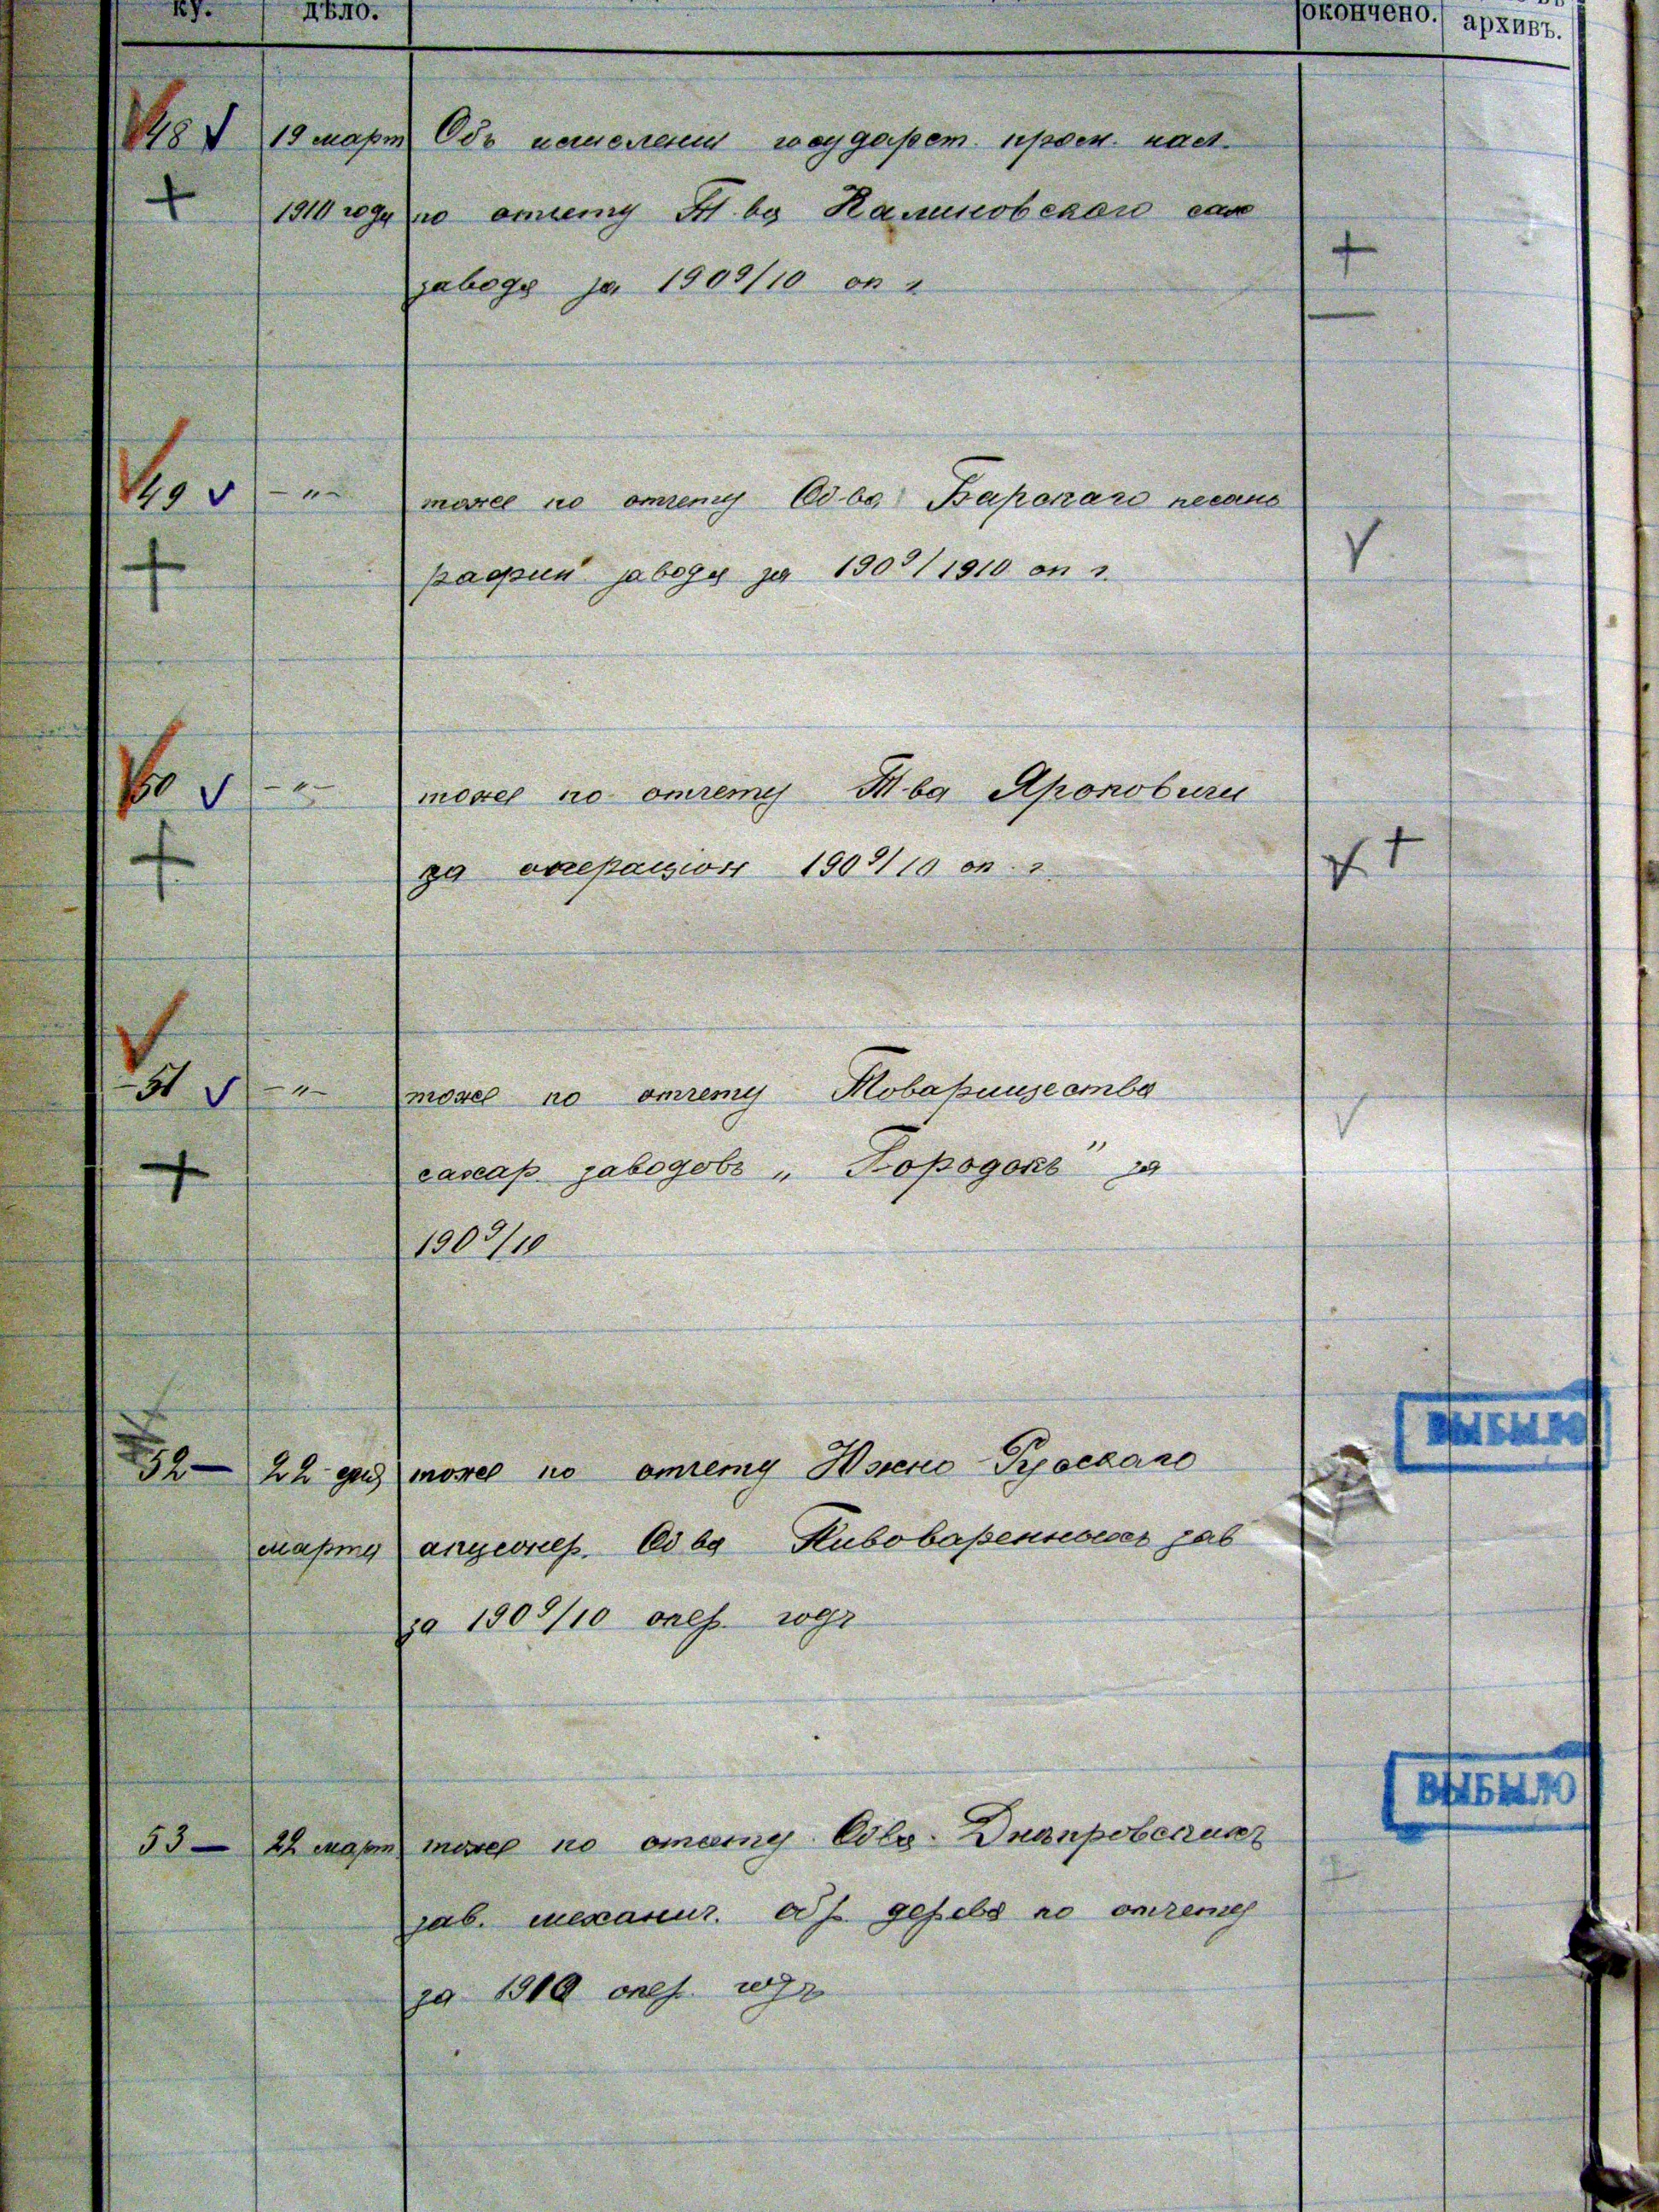 ку. дѣло. окончено. архивъ.
48 19 март Объ исчислении государст. пром. нал.
1910 года по отчету Т-ва Калиновского сах
завода за 1909/10 оп г
49 -"- тоже по отчету Об-ва Барскаго песочно
рафин. завода за 1909/1910 оп г.
50 -"- тоже по отчету Т-ва Яроповичи
за операцион 1909/10 оп. г.
51 -"- тоже по отчету Товарищества
сахар. заводовъ „Городокъ" за
1909/10
ВЫБЫЛО
52 — 22 дня тоже по отчету Южно-Русскаго
марта акционер. Об ва Пивоваренныхъ зав
за 1909/10 опер. годъ
ВЫБЫЛО
53 — 22 март тоже по отчету Обва Днѣпровскихъ
зав. механич. обр. дерева по отчету
за 1910 опер. годъ